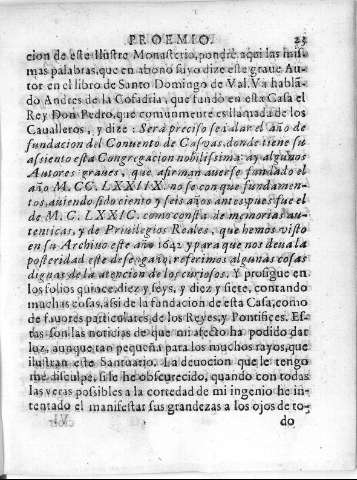 PROEMIO. 23
cion de este Ilustre Monasterio, pondrè aqui las mis-
mas palabras, que en abono suyo dize este graue Au-
tor en el libro de Santo Domingo de Val. Va hablã-
do Andres de la Cofadria, que fundò en esta Casa el
Rey Don Pedro, que comunmente es llamada de los
Caualleros, y dize: Serà preciso señalar el año de
fundacion del Conuento de Casuas, donde tiene su
assiento esta Congregacion nobilissima: ay algunos
Autores graues, que afirman auerse fundado el
año M. CC. LXXIIX. no se con que fundamen-
tos, auiendo sido ciento y seis años antes, pues fue el
de M. C. LXXIC. como consta de memorias au-
tenticas, y de Priuilegios Reales, que hemos visto
en su Archiuo este año 1642 y para que nos deua la
posteridad este desengaño, referimos algunas cosas
dignas de la atencion de los curiosos. Y prosigue en
los folios quinze, diez y seys, y diez y siete, contando
muchas cosas, assi de la fundacion de esta Casa, como
de fauores particulares, de los Reyes, y Pontifices. Es-
tas son las noticias de que mi afecto ha podido dar
luz, aunque tan pequeña para los muchos rayos, que
ilustran este Santuario. La deuocion que le tengo
me disculpe, si le he obscurecido, quando con todas
las veras possibles a la cortedad de mi ingenio he in-
tentado el manifestar sus grandezas a los ojos de to-
do